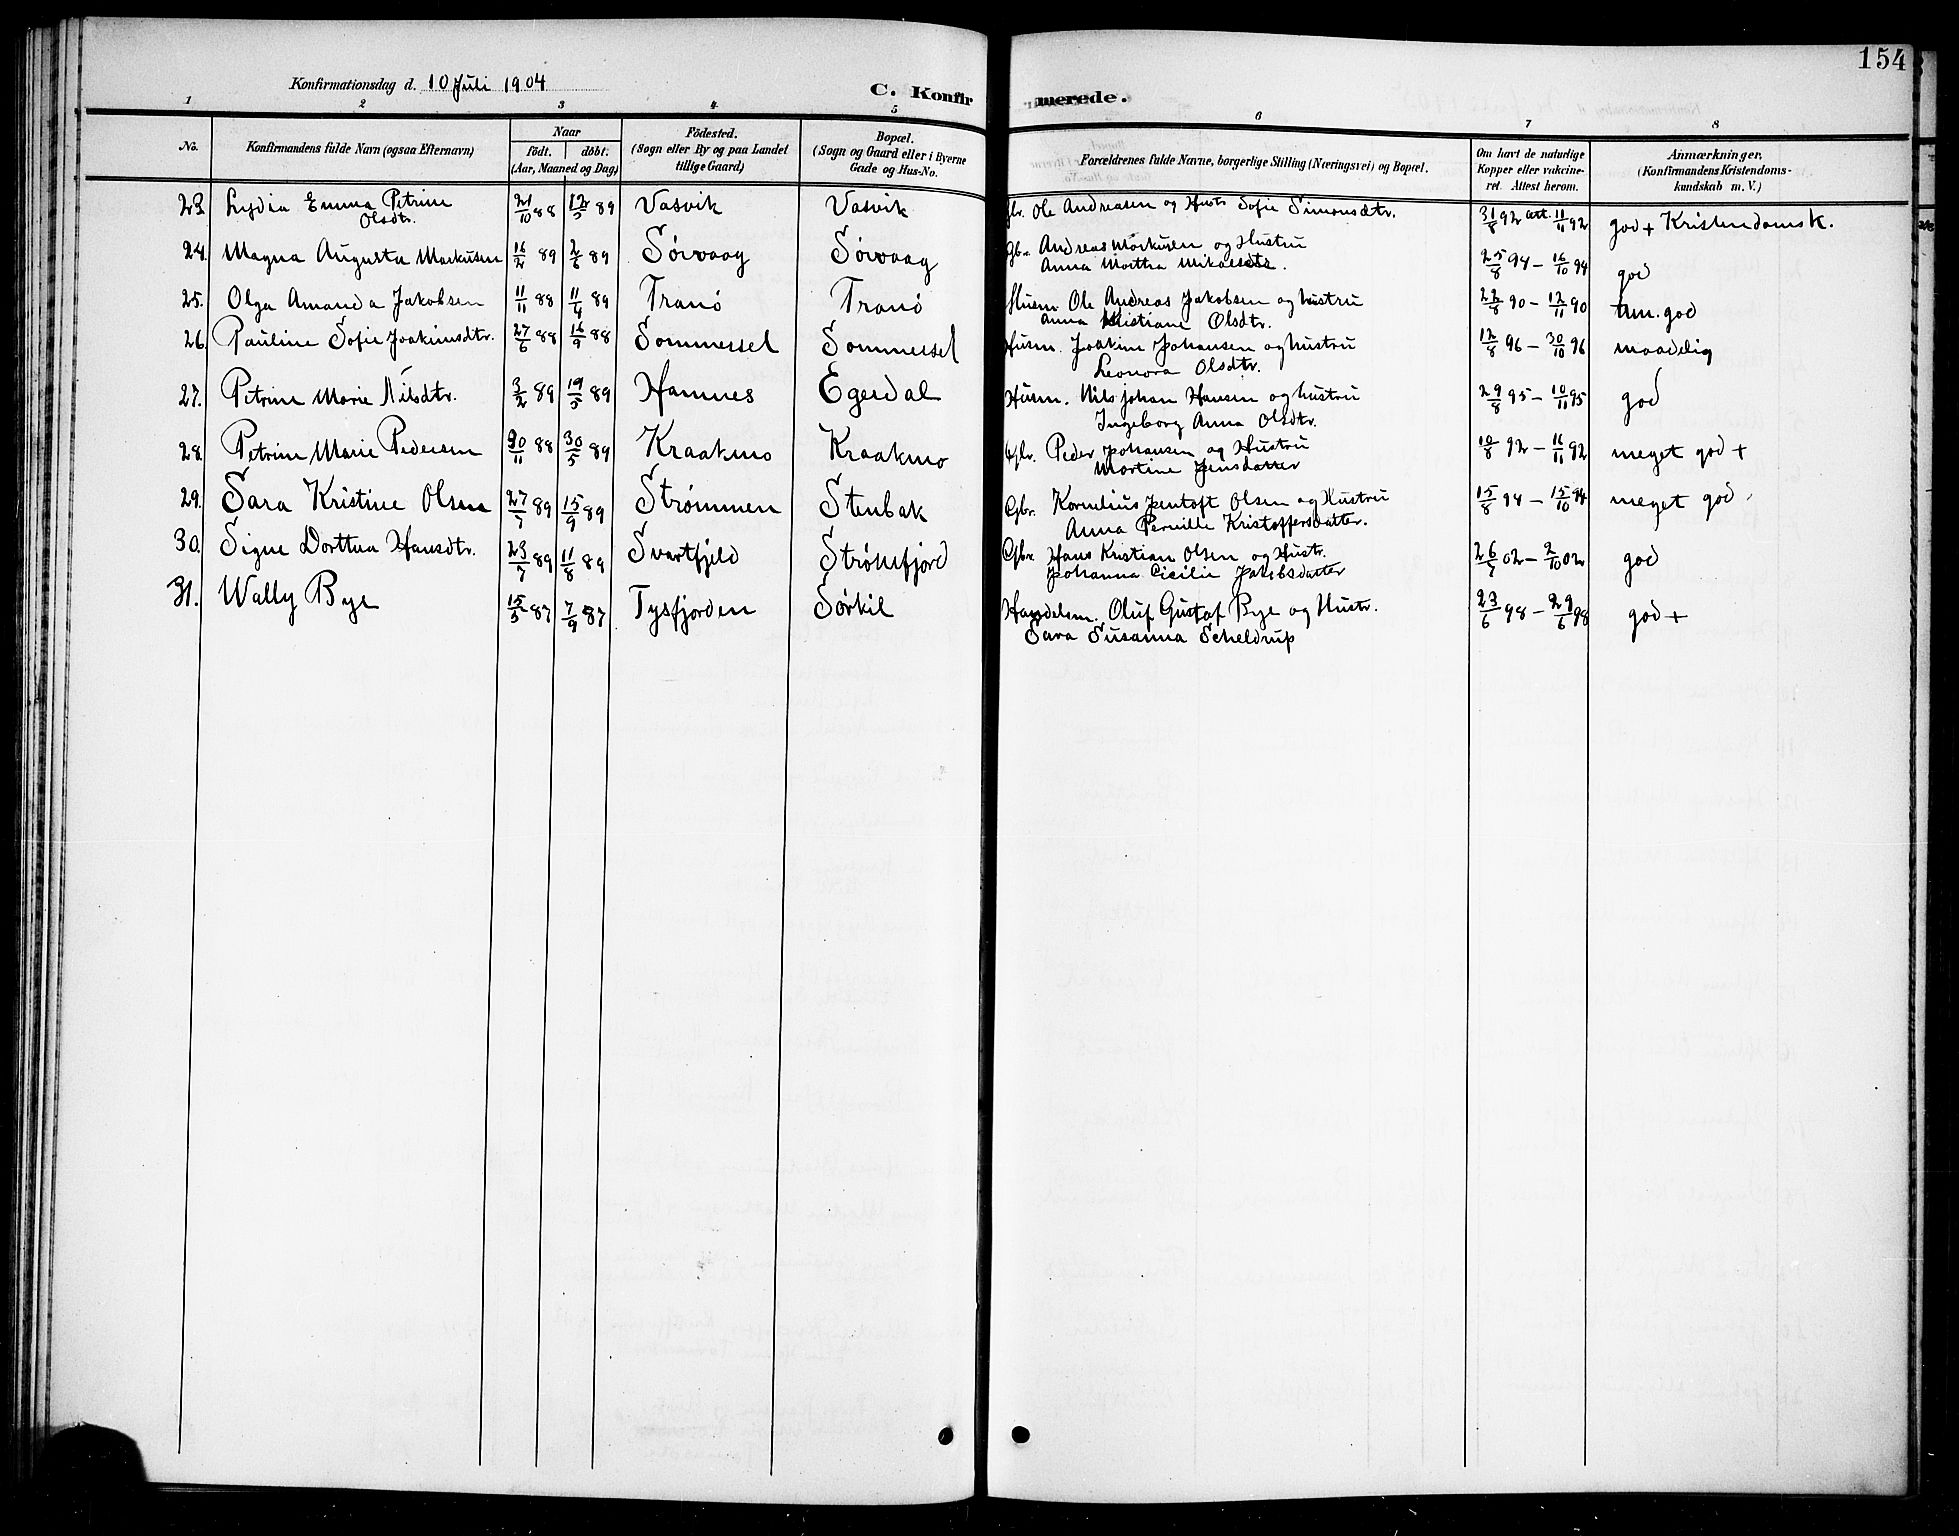 154
Konfirmationsdag d. 10 Juli 1904
C. Konfirmerede.
1 2 3 4 5 6 7 8
No. Konfirmandens fulde Navn (ogsaa Efternavn) Naar födt. döbt. (Aar, Maaned og Dag) Födested. (Sogn eller By og paa Landet tillige Gaard) Bopæl. (Sogn og Gaard eller i Byerne Gade og Hus-No. Forældrenes fulde Navne, borgerlige Stilling (Næringsvei) og Bopæl. Om havt de naturlige Kopper eller vakcineret. Attest herom. Anmærkninger, (Konfirmandens Kristendomskundskab m. V.)
23. Lydia Emma Petrine Olsdtr. 21/10 88 12/5 89 Vasvik Vasvik Gbr. Ole Andreasen og Hustr Sofie Simonsdtr. 31/8 92 att. 11/11 92 god + Kristendomsk.
24. Magna Augusta Markusen 16/2 89 2/6 89 Sörvaag Sörvaag Gbr. Andreas Markusen og Hustru
Anna Martha Mikalsdtr. 25/8 94 – 16/10 94 god
25. Olga Amanda Jakobsen 11/11 88 11/4 89 Tranö Tranö Husm. Ole Andreas Jakobsen og hustru
Anna Kristiane Olsdtr. 22/8 90 – 12/11 90 tem. god
26. Pauline Sofie Joakimsdtr. 27/6 88 16/9 88 Sommersel Sommersel Husm. Joakim Johansen og hustru
Leonora Olsdtr. 12/8 96 – 30/10 96 maadelig
27. Petrine Marie Nilsdtr. 3/2 89 19/5 89 Hamnes Egerdal Husm. Nils Johan Hansen og hustru
Ingeborg Anna Olsdtr. 29/8 95 – 10/11 95 god
28. Petrine Marie Pedersen 30/11 88 30/5 89 Kraakmo Kraakmo Gbr. Peder Johansen og Hustru
Martine Jensdatter 10/8 92 – 16/11 92 meget god +
29. Sara Kristine Olsen 27/7 89 15/9 89 Strømmen Stenbak Gbr. Kornelius Jentoft Olsen og Hustru
Anna Pernille Kristoffersdatter. 15/8 94 – 15/10 94 meget god
30. Signe Dorthea Hansdtr. 23/7 89 11/8 89 Svartfjeld Strømfjord Gbr. Hans Kristian Olsen og Hustr.
Johanna Cicilie Jakobsdatter 26/7 02 – 2/10 02 god
31. Wally Bye 15/5 87 7/9 87 Tysfjorden Sørkil Handelsm. Oluf Gustaf Bye og Hustr.
Sara Susanna Scheldrup 23/6 98 – 29/6 98 god +